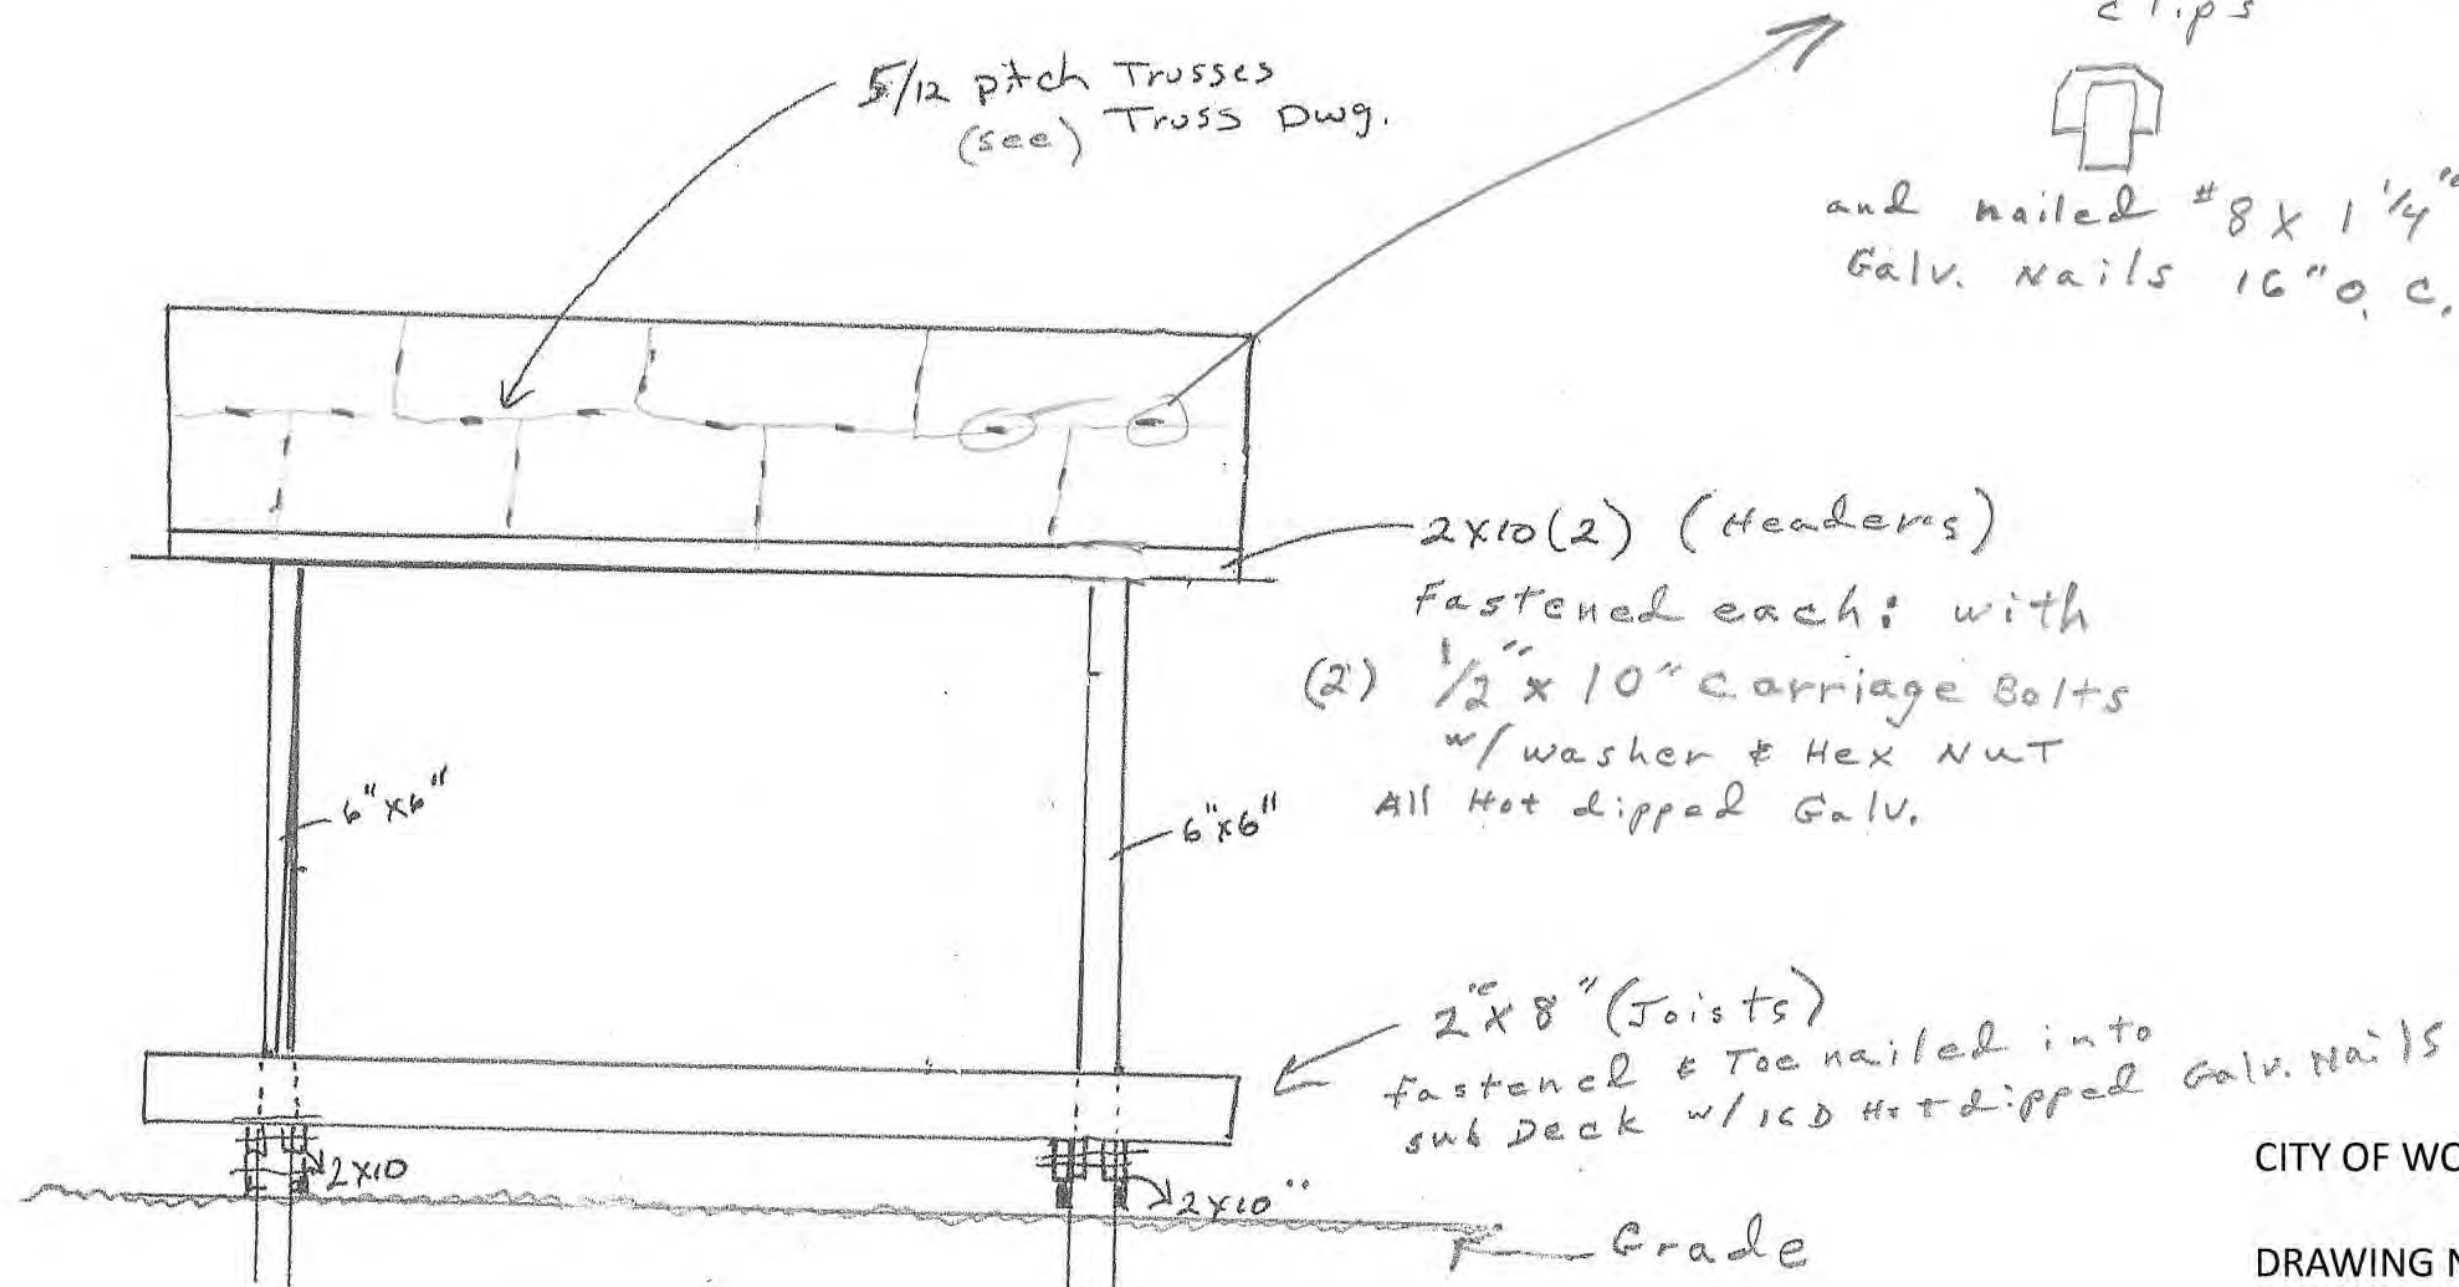 clips
5/12 pitch Trusses
(see) Truss Dwg.
and nailed #8 X 1 1/4"
Galv. Nails 16" O.C.
2X10(2) (Headers)
Fastened each: with
(2) 1/2" x 10" Carriage Bolts
w/ washer & Hex NuT
All Hot dipped Galv.
6"x6"
6"x6"
2"x8" (Joists)
fastened & Toe nailed into
sub Deck w/ 16D Hot dipped Galv. Nails
2X10
2X10"
Grade
CITY OF WO
DRAWING N